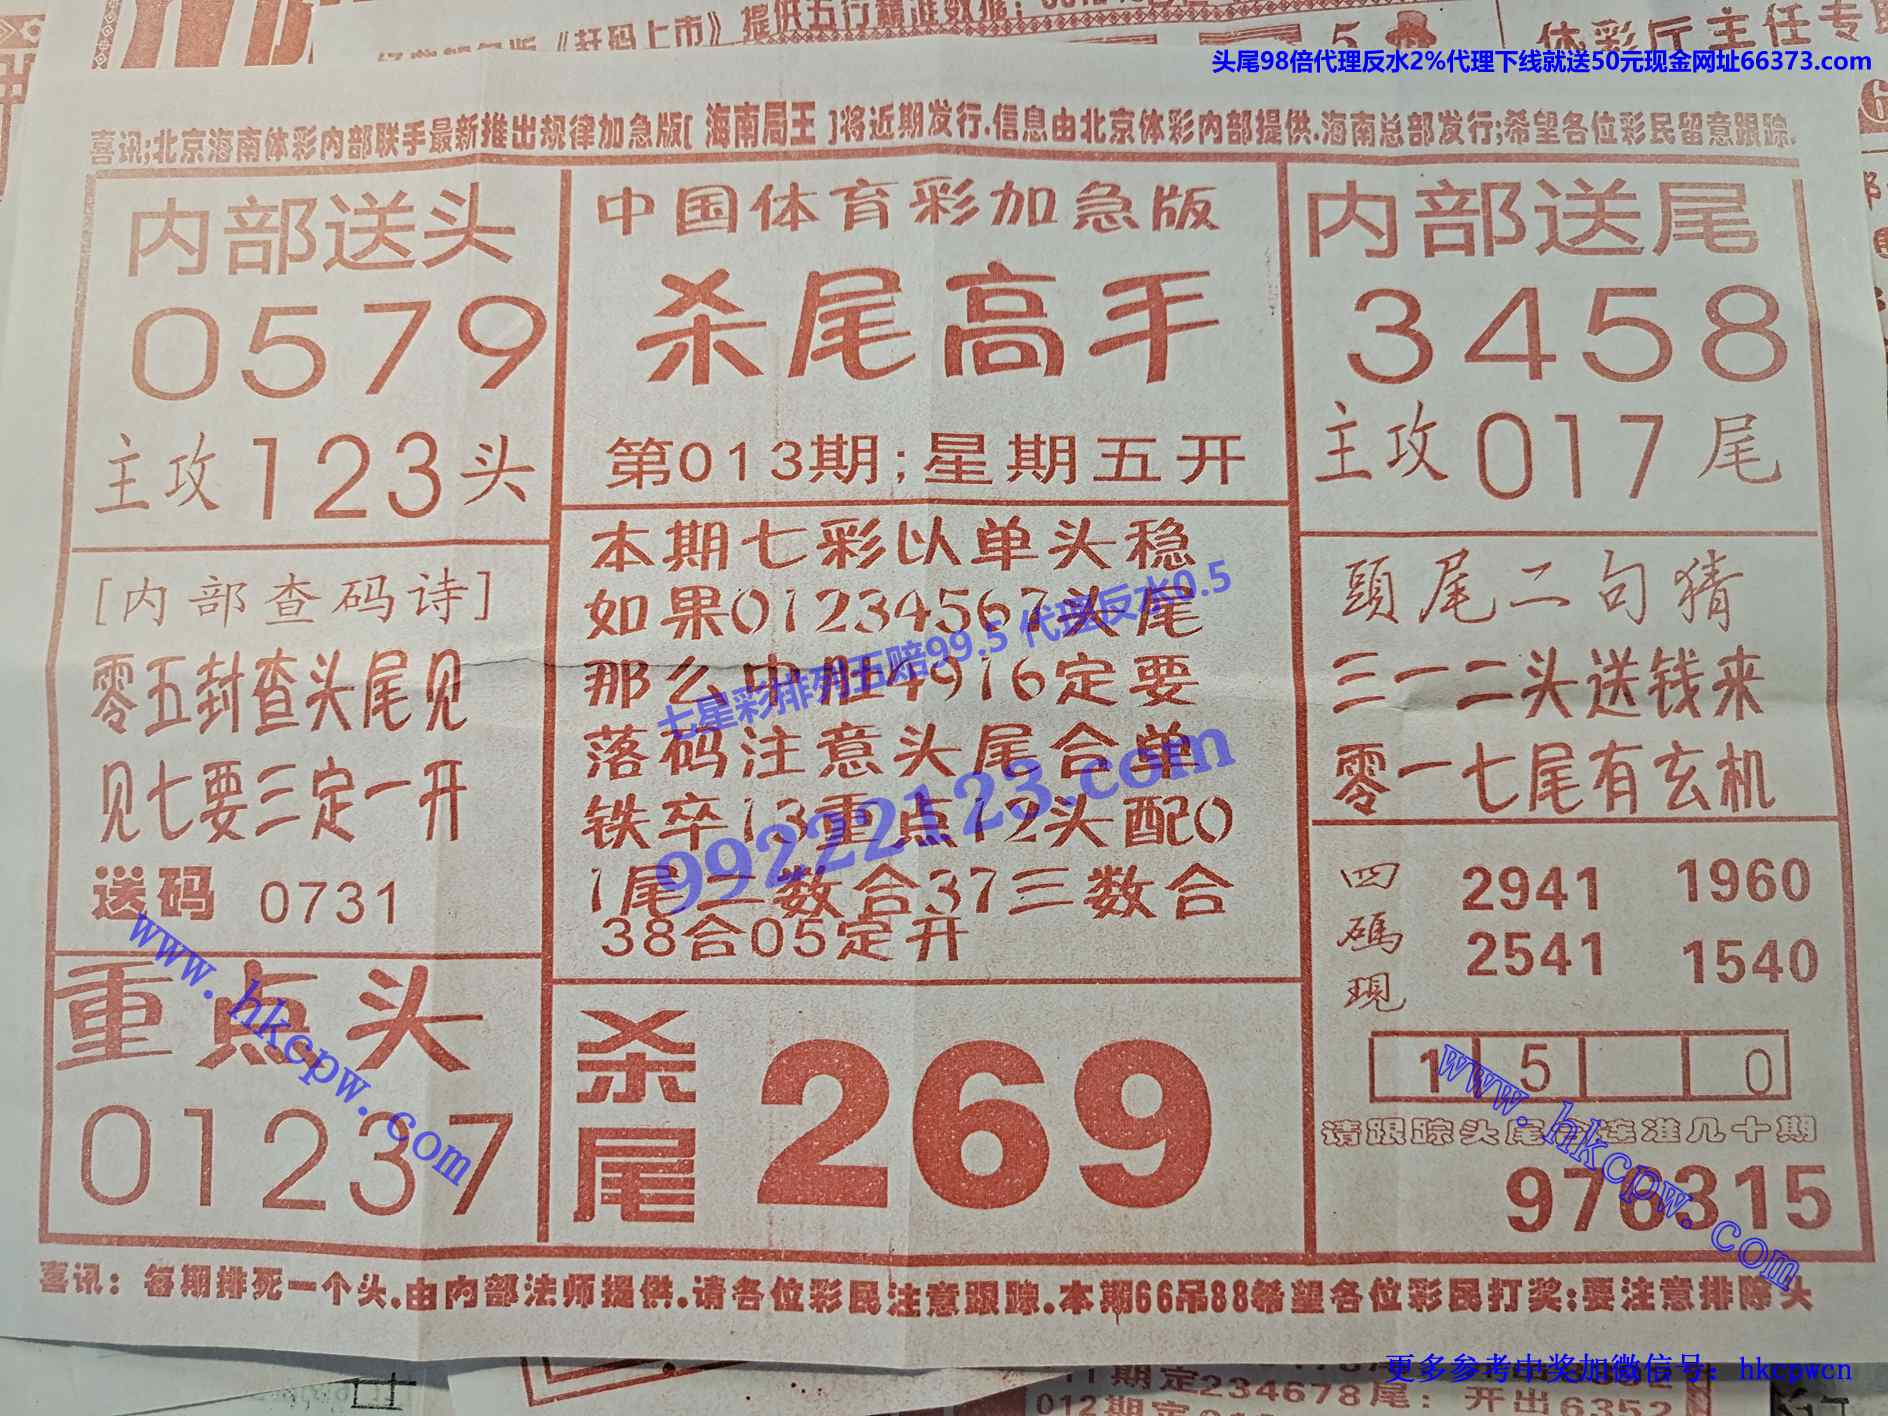 提供五行精准数据:
《赶码上市》
体彩厅主任专
头尾98倍代理反水2%代理下线就送50元现金网址66373.com
喜讯;北京海南体彩内部联手最新推出规律加急版[ 海南局王 ]将近期发行.信息由北京体彩内部提供.海南总部发行;希望各位彩民留意跟踪.
内部送头
0579
主攻123头
[内部查码诗]
零五封查头尾见
见七要三定一开
送码 0731
重点头
01237
中国体育彩加急版
杀尾高手
第013期;星期五开
本期七彩以单头稳
如果01234567头尾
那么中肚4916定要
落码注意头尾合单
铁卒13重点12头配0
1尾二数合37三数合
38合05定开
杀尾 269
内部送尾
3458
主攻017尾
頭尾二句猜
三一二头送钱来
零一七尾有玄机
四碼現
2941 1960
2541 1540
1 5 0
请跟踪头尾合连准几十期
976315
喜讯: 每期排死一个头.由内部法师提供.请各位彩民注意跟踪.本期66吊88希望各位彩民打奖;要注意排除头
七星彩排列五赔99.5 代理反水0.5
99222123.com
www.hkcpw.com
www.hkcpw.com
更多参考中奖加微信号: hkcpwcn
期定234678尾: 开出6352
012期定